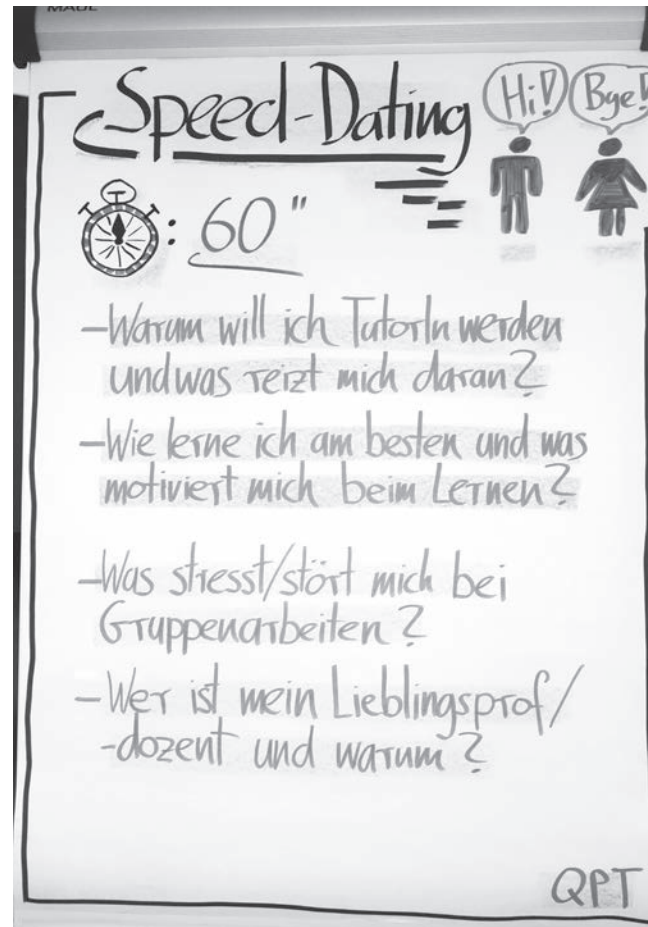 MAUL
Speed-Dating
Hi!
Bye!
: 60"
-Warum will ich TutorIn werden
und was reizt mich daran?
-Wie lerne ich am besten und was
motiviert mich beim Lernen?
-Was stresst/stört mich bei
Gruppenarbeiten?
-Wer ist mein Lieblingsprof/
-dozent und warum?
QPT